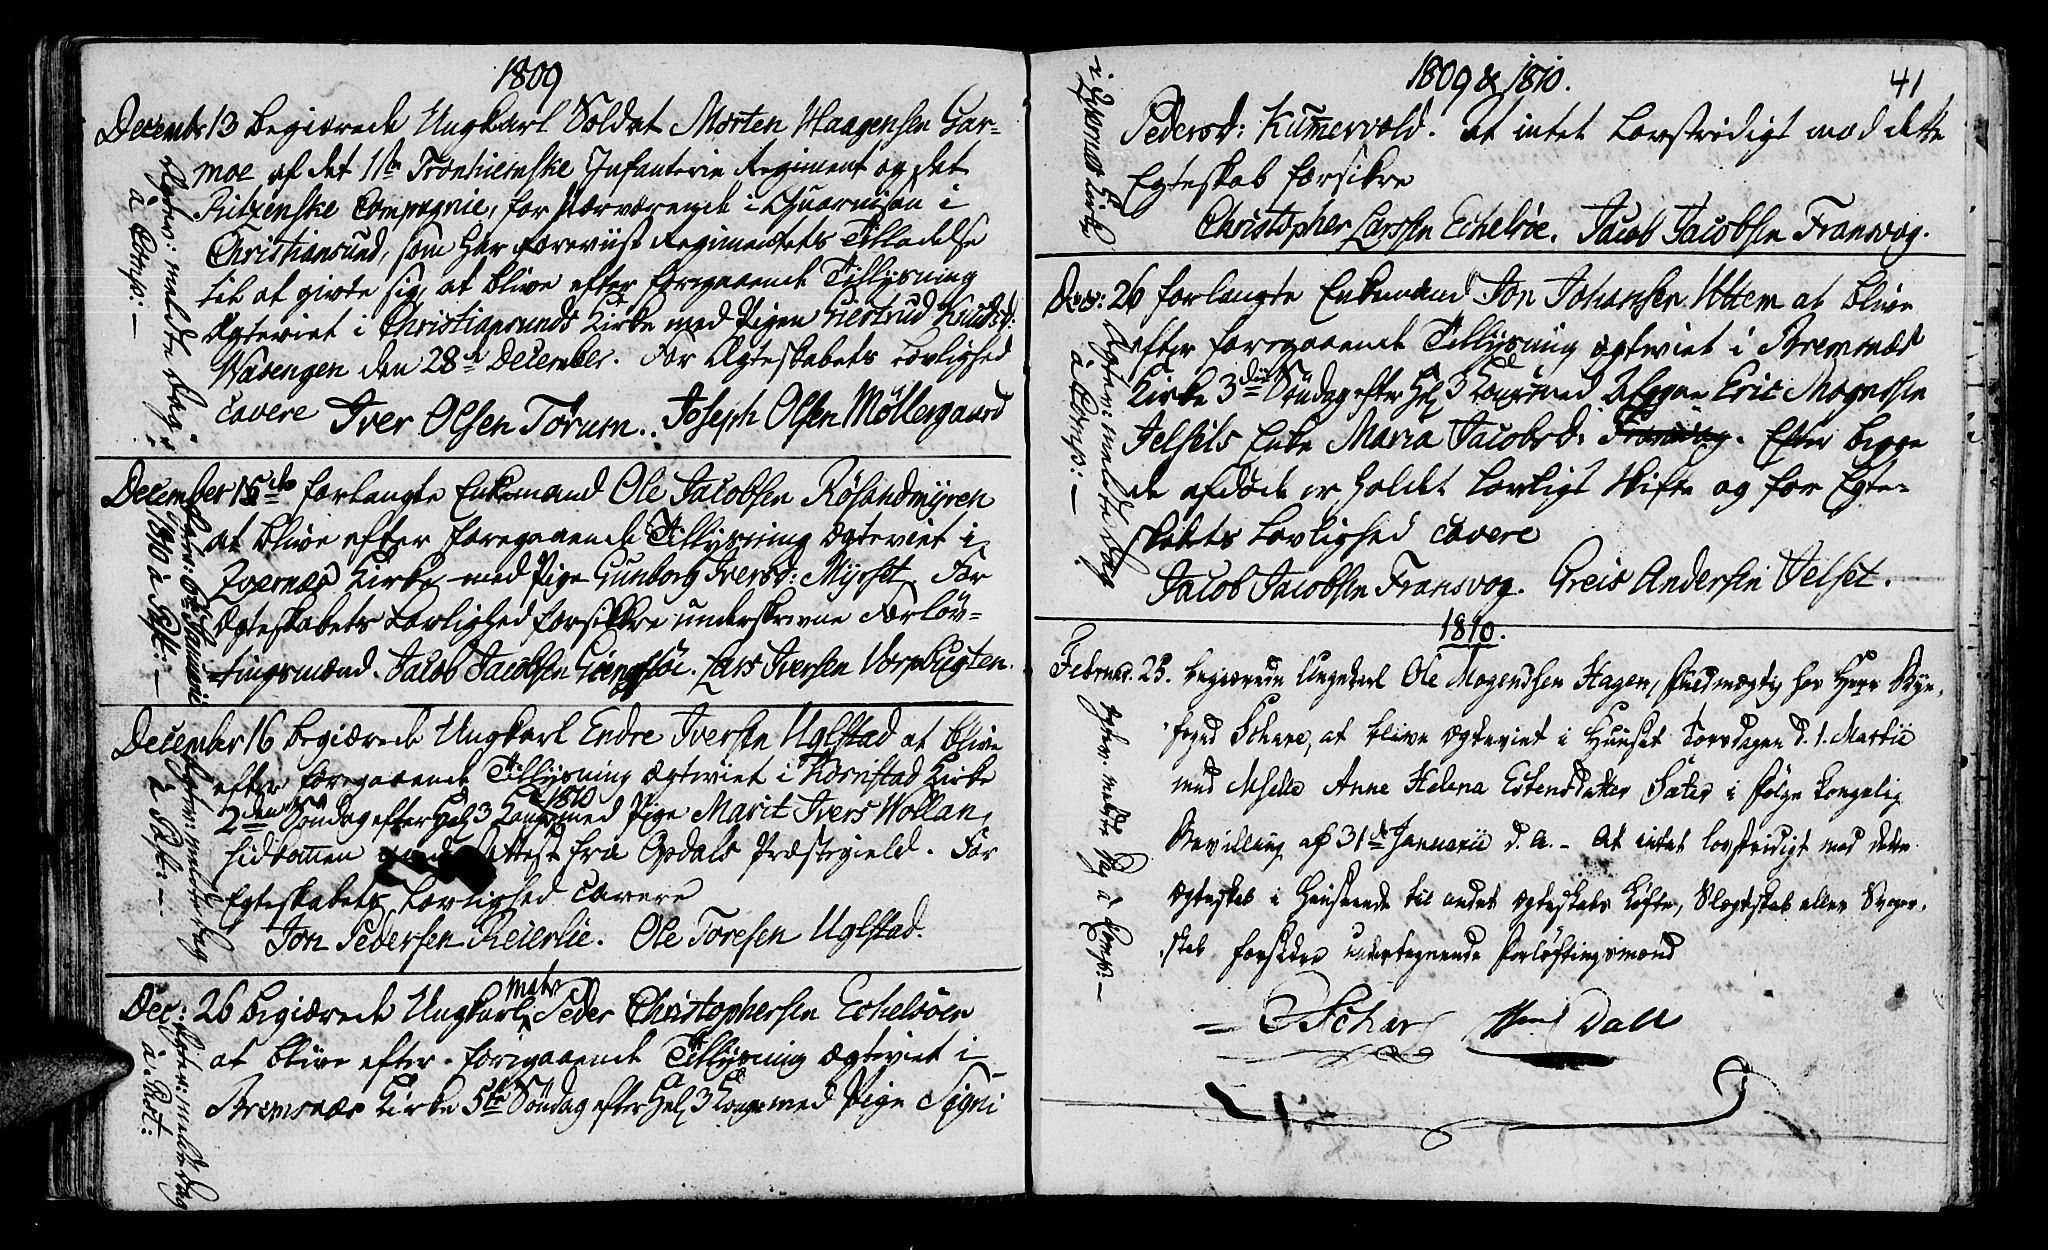 1809
Decembr 13 begiærede Ungkarl Soldat Morten Haagensen Gar-
moe af det 1ste Tronhiemske Infanterie Regiment og det
Ritzenske Compagnie, for nærværende i Guarnison i
Christiansund, som har foreviist Regimentets Tilladelse
til at givte sig, at blive efter foregaaende Tillysning
Ægteviet i Christiansunds Kirke med Pigen Giertrud Knudsd:
Waaengen den 28de December. For Ægteskabets Lovlighed
cavere Iver Olsen Törum. Joseph Olsen Möllergaard
Ægtev: meldte Dag
à Comp: —
December 15de forlangte Enkemand Ole Jacobsen Røsandmyren
at blive efter foregaaende Tillysning ægteviet i
Qvernæs Kirke med Pige Gunborg Iversd: Myrset. For
Ægteskabets Lovlighed forsikkre underskrevne Forløv-
tingsmænd. Jacob Jacobsen Lars Iversen Vorpbugten.
1810 à
December 16 begiærede Ungkarl Endre Iversen Uglstad at blive
efter foregaaende Tillysning ægteviet i Kornstad Kirke
2den Søndag efter Hel 3 Konger 1810 med Pige Marit Ivers Wollan,
hidkommen med Attest fra Opdals Præstegield. For
Egteskabets Lovlighed cavere
Jon Pedersen Reierlie. Ole Toresen Uglstad.
Ægtev: meldte Dag
Dec: 26 begiærede Ungkarl, Matr Peder Christophersen Echelsöen
at blive efter foregaaende Tillysning Ægteviet i
Bremsnæs Kirke 5te Søndag efter Hel 3 Konger med Pige Signi
Ægtev: meldte Dag
à
1809 & 1810.
41
Pedersd: Kummervold. At intet Lovstridigt mod dette
Egteskab forsikre
Christopher Larssen Echelsöe. Jacob Jacobsen Fransvog.
i Qvernæs Kirke
Dec: 26 forlangte Enkemand Jon Johansen Uttem at blive
efter foregaaende Tillysning ægteviet i Bremsnæs
Kirke 3die Søndag efter Hel 3 Konger med Afgagne Eric Mognssen
Jelsets Enke Maria Jacobsd: Fransvog. Efter begge
de afdøde er holdet Lovligt Skifte og for Egte-
skabets Lovlighed cavere
Jacob Jacobsen Fransvog. Greis Andersen Jelset.
Ægtev: meldte Dag
à Comp: —
1810.
Februar. 25. begiærede Ungekarl Ole Mogensen Hagen, Fuldmægtig hos Herr Bye-
foged Schare, at blive ægteviet i Huuset Torsdagen d. 1. Martii
med Mselle Anne Helena Estensdatter Sæter i Følge kongelig
Bevilling af 31te Januarii d. A. - At intet lovstridigt mod dette
ægteskab i Henseende til andet ægteskabs Løfte, Slægtskab eller Svoger-
skab forsikre undertegnende Forløftingsmænd
Schar Dall
Egtev. meldte Dag à Comp: —